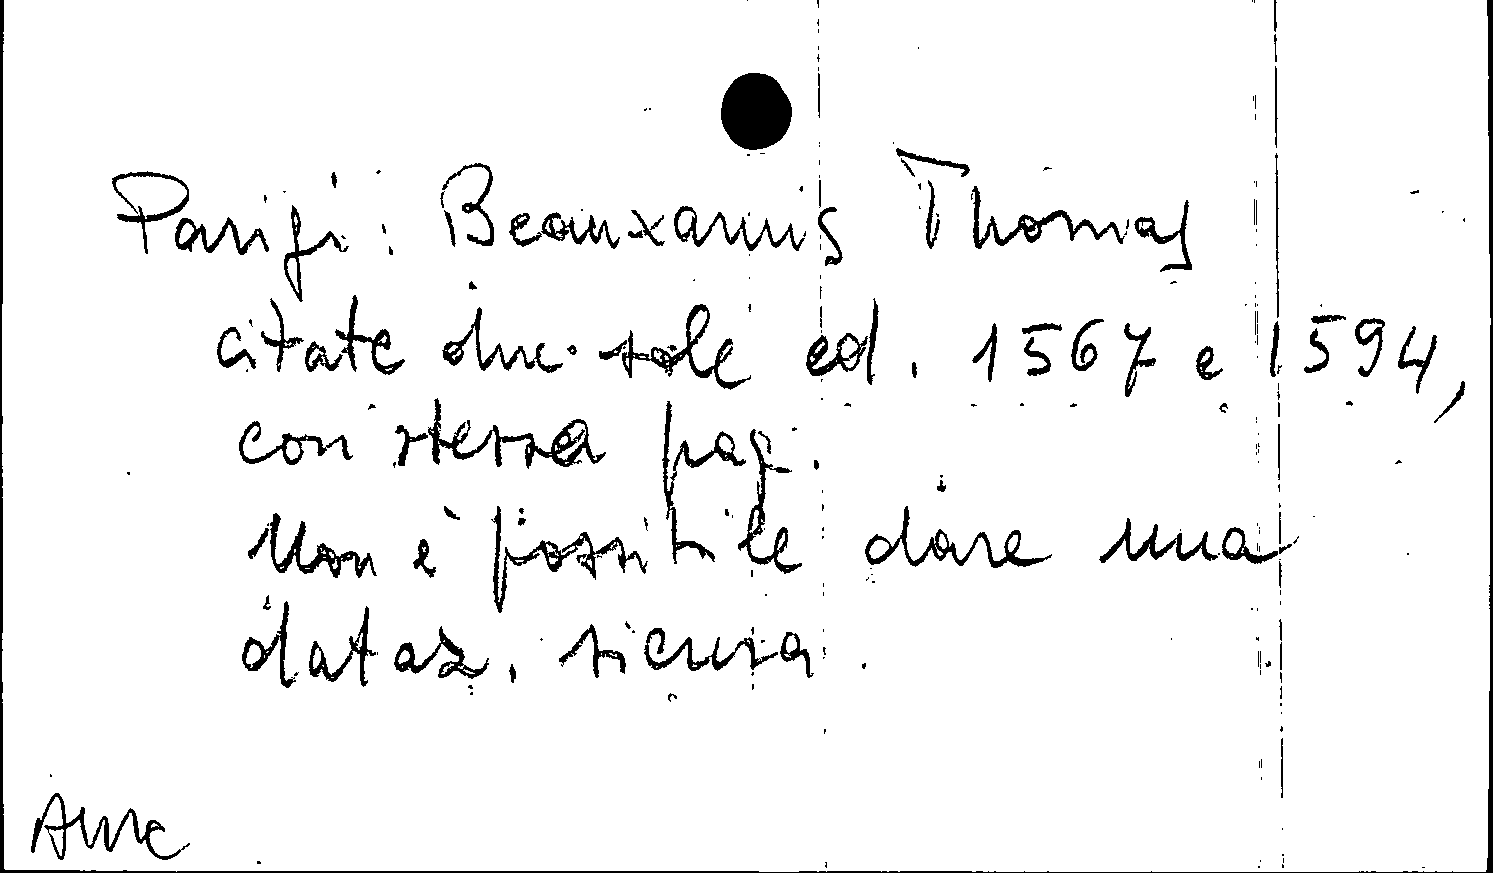 Parigi: Beauxamis Thomas
citate due sole ed. 1567 e 1594,
con stessa pag.
Non è possibile dare una
dataz. sicura.